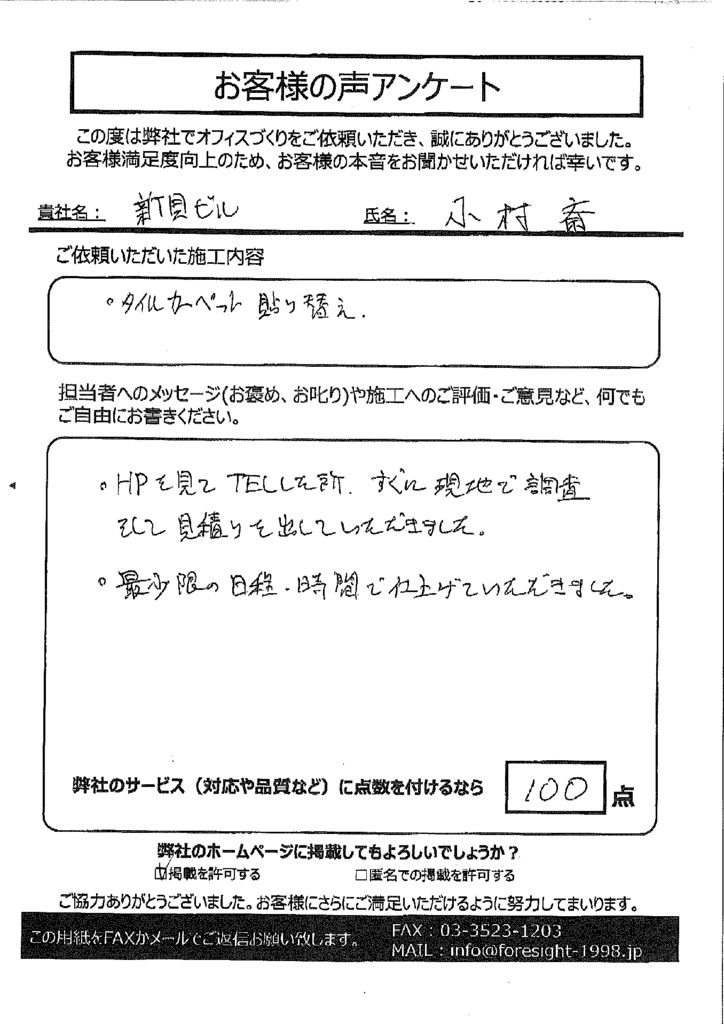 お客様の声アンケート
この度は弊社でオフィスづくりをご依頼いただき、誠にありがとうございました。
お客様満足度向上のため、お客様の本音をお聞かせいただければ幸いです。
貴社名： 新貝ビル 氏名： 小村 斎
ご依頼いただいた施工内容
。タイルカーペット 貼り替え.
担当者へのメッセージ(お褒め、お叱り)や施工へのご評価・ご意見など、何でも
ご自由にお書きください。
。HPを見てTELした所、すぐに現地で調査
そして見積りを出していただきました。
。最少限の日程・時間で仕上げていただきました。
弊社のサービス（対応や品質など）に点数を付けるなら 100 点
弊社のホームページに掲載してもよろしいでしょうか？
☑掲載を許可する □匿名での掲載を許可する
ご協力ありがとうございました。お客様にさらにご満足いただけるように努力してまいります。
この用紙をFAXかメールでご返信お願い致します。
FAX：03-3523-1203
MAIL：info@foresight-1998.jp